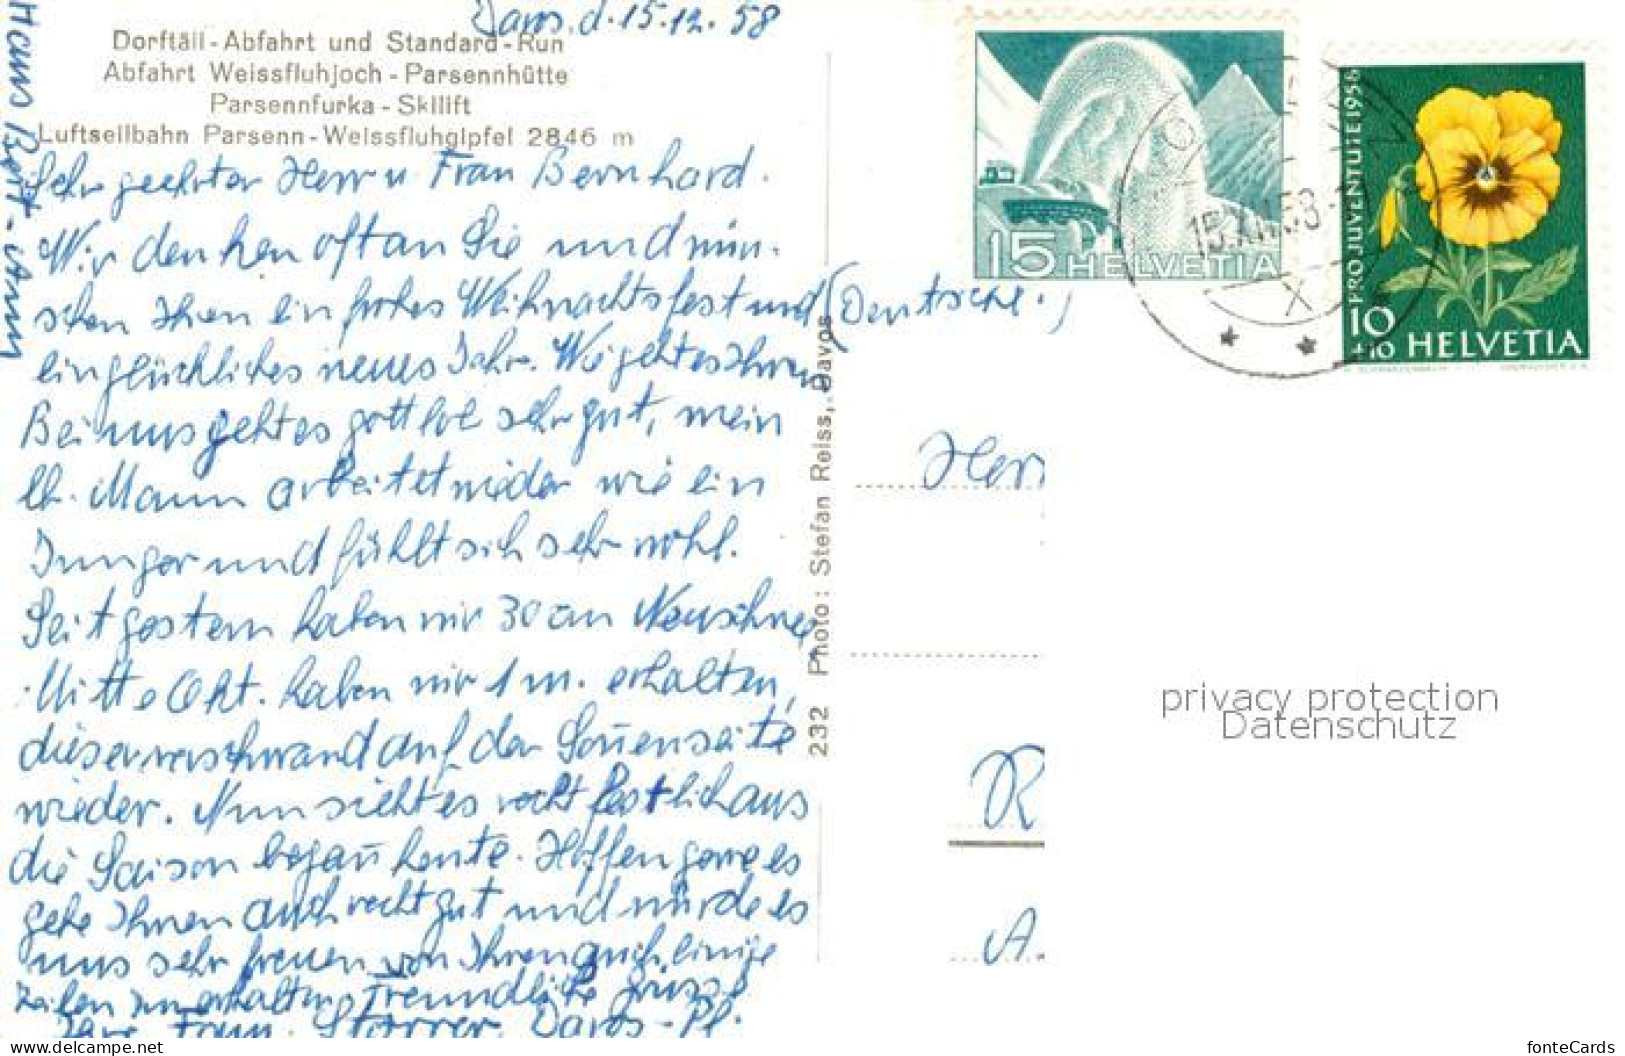 Davos. d. 15.12.58
Dorftäli-Abfahrt und Standard-Run
Abfahrt Weissfluhjoch - Parsennhütte
Parsennfurka - Skilift
Luftseilbahn Parsenn-Weissfluhgipfel 2846 m
Sehr geehrter Herr u. Frau Bernhard.
Wir denken oft an Sie und wün-
schen Ihnen ein frohes Weihnachtsfest und (Deutsche.)
ein glückliches neues Jahr. Wie geht es Ihnen
Bei uns geht es gottlob sehr gut, mein
lb. Mann arbeitet wieder wie ein
Junger und fühlt sich sehr wohl.
Seit gestern haben wir 30 cm Neuschnee
Mitte Okt. haben wir 1 m. erhalten,
dieser verschwand auf der Soñenseite
wieder. Nun sieht es recht festlich aus
die Saison begañ heute. Hoffen gerne es
gehe Ihnen auch recht gut und würde es
uns sehr freuen von Ihnen auch einige
Zeilen zu erhalten, Freundliche Grüsse
Ihre Frau. Storrer. Davos-Pl.
Hans
232 Photo: Stefan Reiss, Davos
15 HELVETIA
15.XII.58
X
PRO JUVENTUTE 1958
10
+10 HELVETIA
Herr
R
A.
privacy protection
Datenschutz
fontCards.com
fonteCards